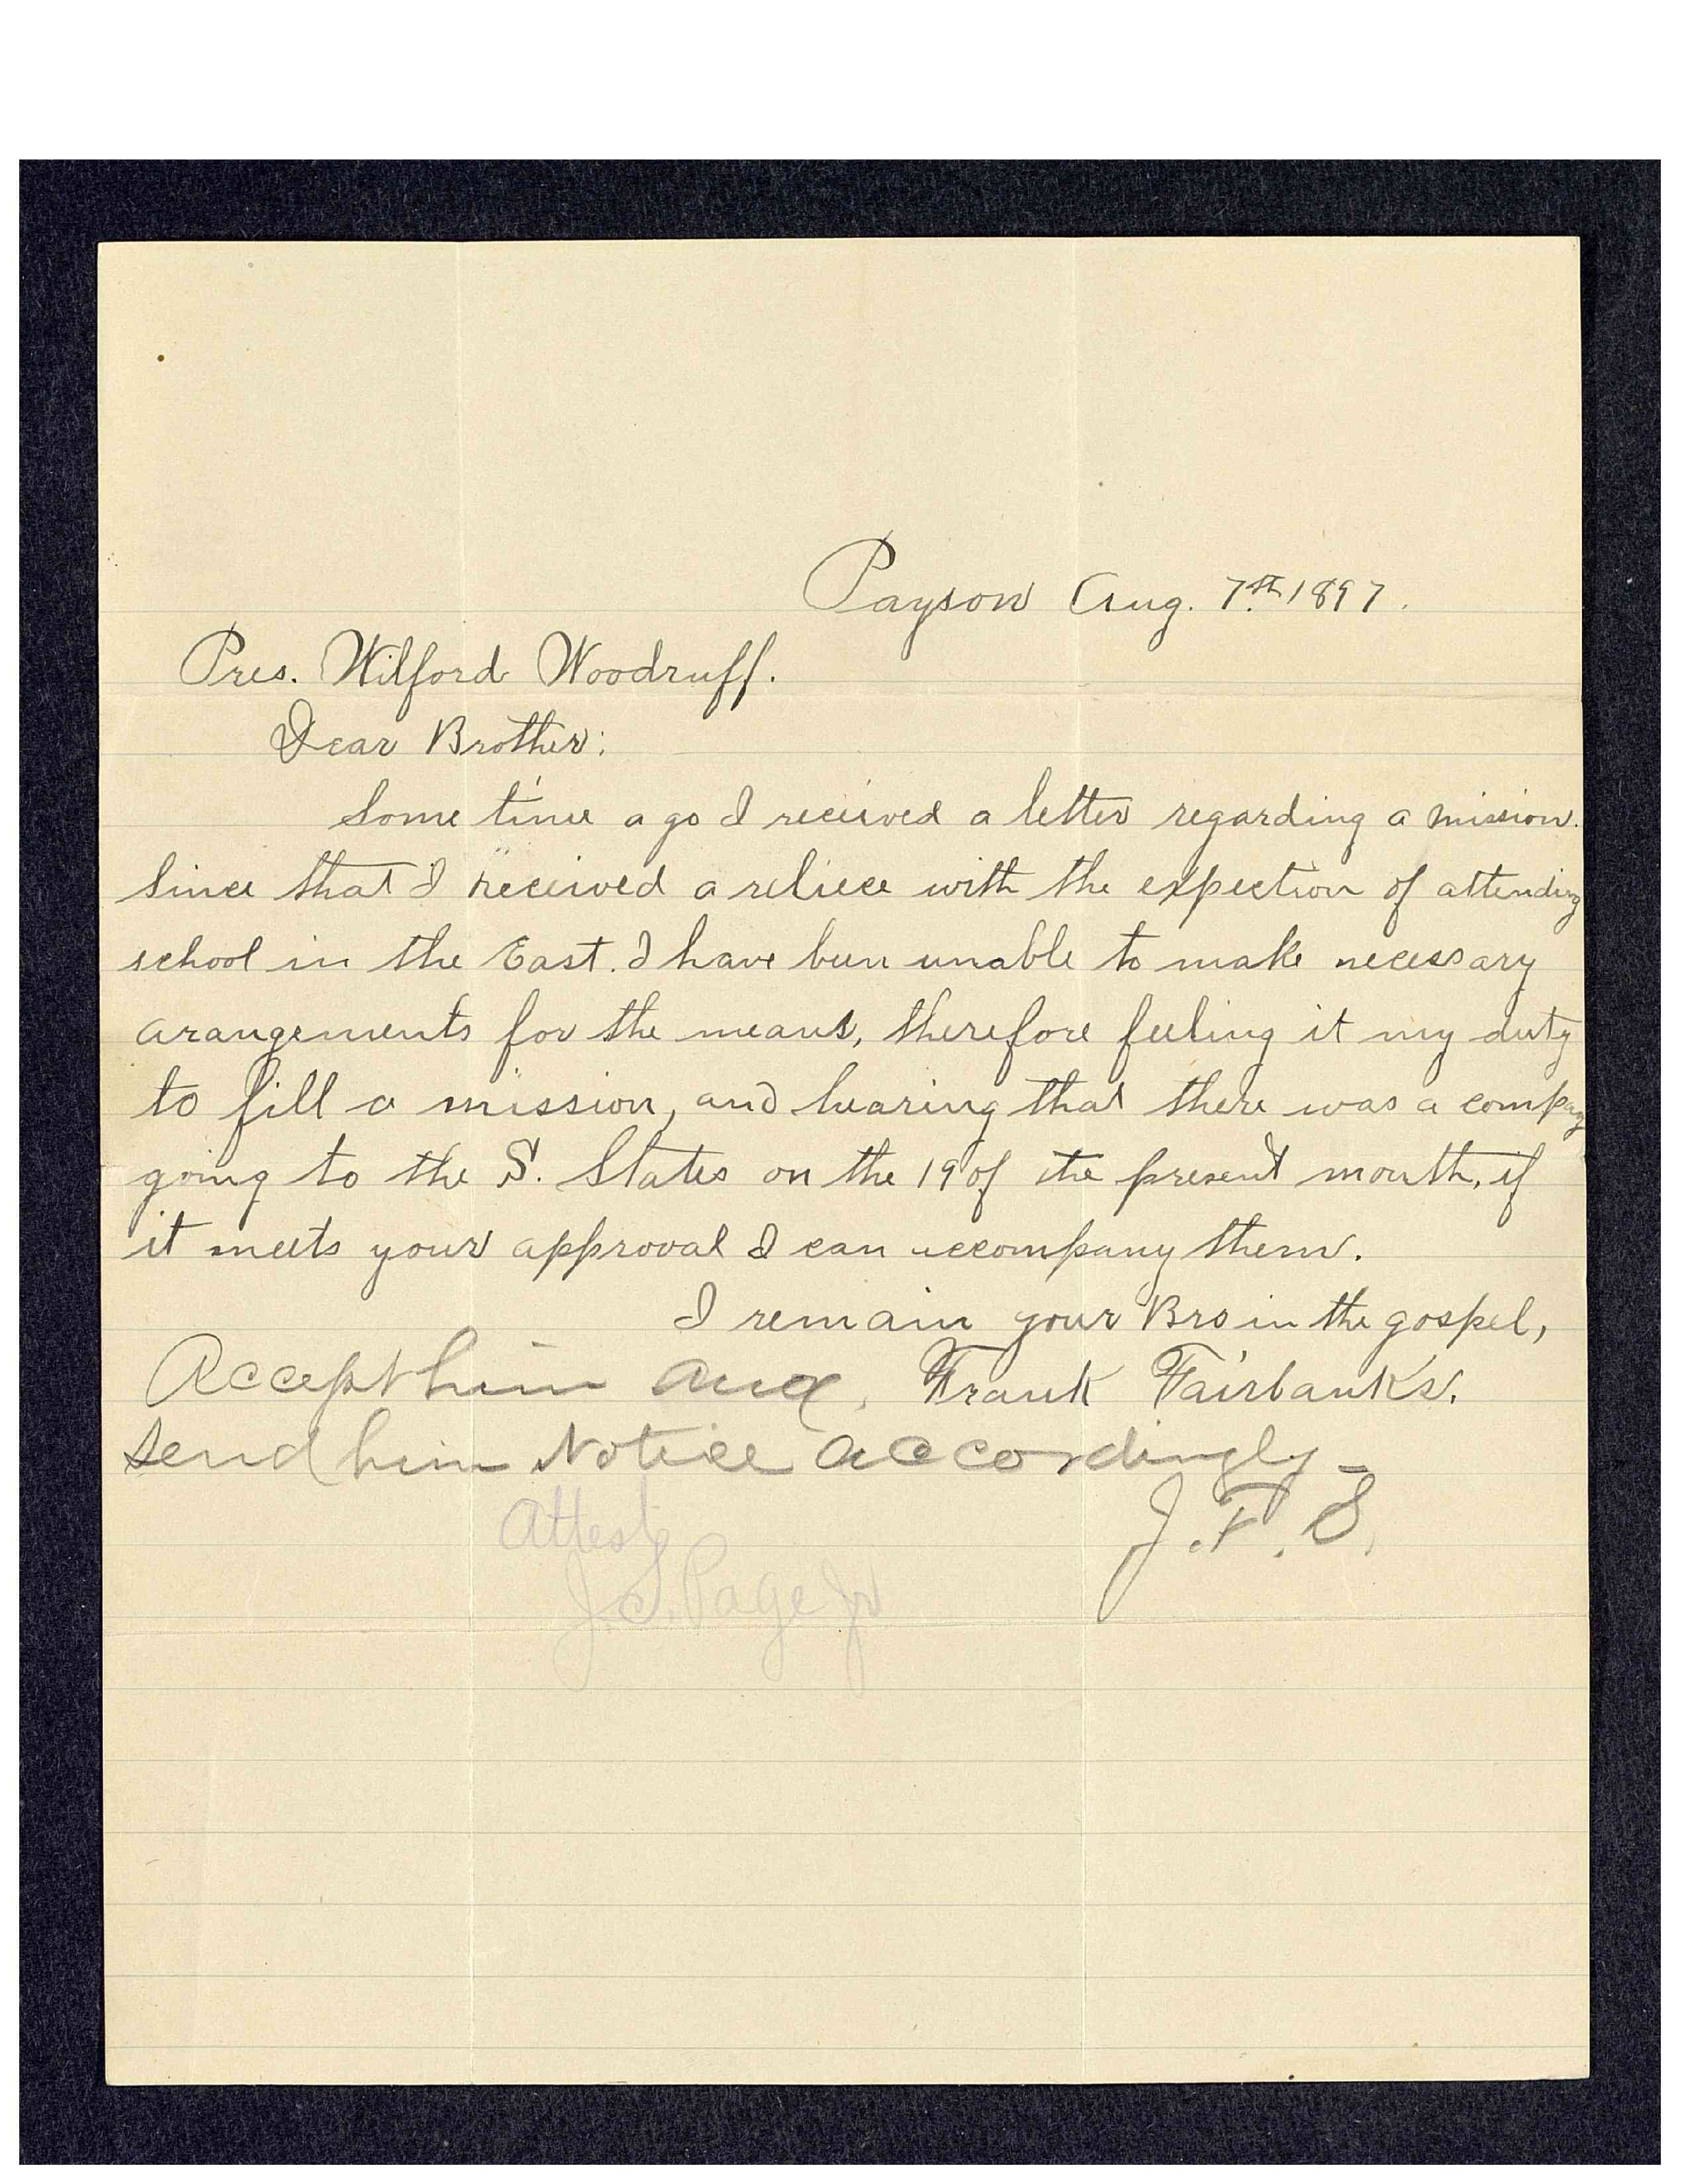 Payson Aug. 7th 1897.
Pres. Wilford Woodruff.
Dear Brother:
Some time a go I received a letter regarding a mission.
Since that I received a reliece with the expection of attending
school in the East. I have been unable to make necessary
arangements for the means, therefore feeling it my duty
to fill a mission, and hearing that there was a compay
going to the S. States on the 19 of the present month, if
it meets your approval I can accompany them.
I remain your Bro in the gospel,
Frank Fairbanks.
Accept him and
send him Notice accordingly –
J. F. S.
Attest
J. S. Page Jr